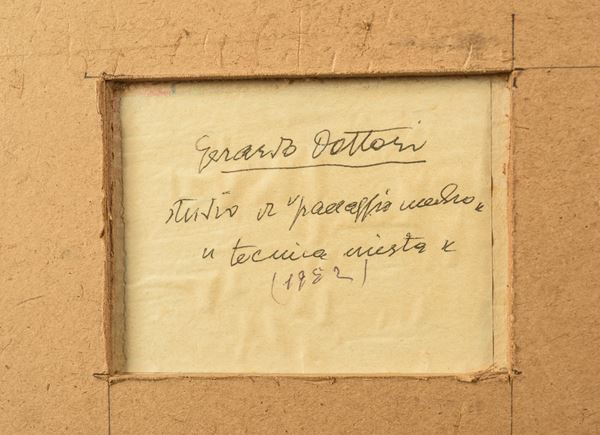 Gerardo Dottori
studio di "paesaggio umbro"
"tecnica mista"
(1982)